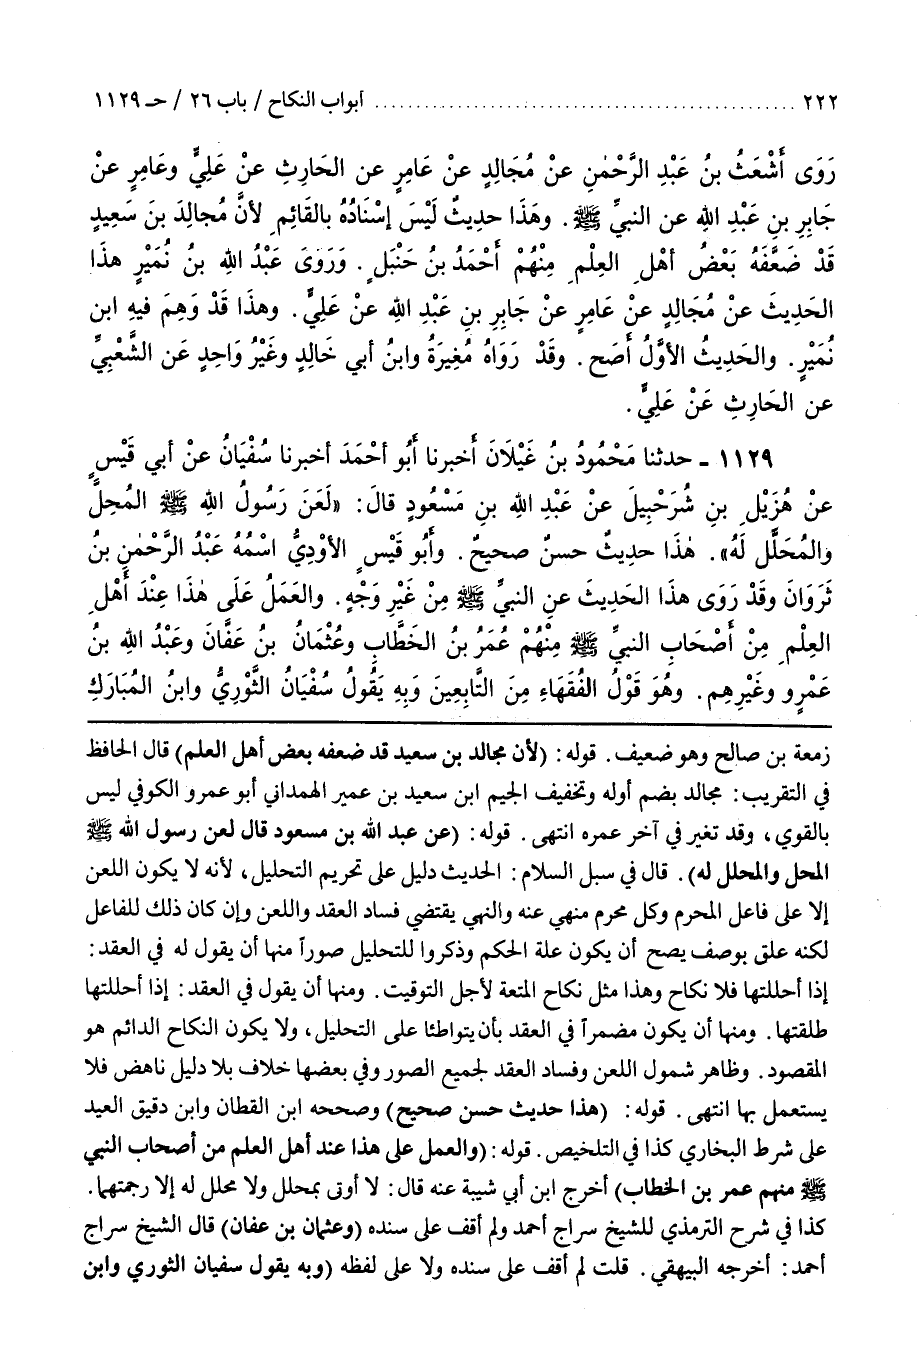 ٢٢٢ ........................................ أبواب النكاح / باب ٢٦ / حـ ١١٢٩
رَوَى أَشْعَثُ بنُ عَبْدِ الرَّحْمٰنِ عنْ مُجَالِدٍ عنْ عَامِرٍ عن الحَارِثِ عنْ عَلِيٍّ وعَامِرٍ عنْ
جَابِرِ بنِ عَبْدِ اللهِ عن النبيِّ ﷺ. وهَذَا حديثٌ لَيْسَ إسْنَادُهُ بالقَائِمِ لأنَّ مُجالِدَ بنَ سَعِيدٍ
قَدْ ضَعَّفَهُ بَعْضُ أهْلِ العِلْمِ مِنْهُمْ أَحْمَدُ بنُ حَنْبَلٍ. ورَوَىَ عَبْدُ اللهِ بنُ نُمَيْرٍ هذَا
الحَدِيثَ عنْ مُجَالِدٍ عنْ عَامِرٍ عنْ جَابِرِ بنِ عَبْدِ اللهِ عنْ عَلِيٍّ. وهذَا قَدْ وَهِمَ فيهِ ابن
نُمَيْرٍ. والحَدِيثُ الأوَّلُ أَصَح. وقَدْ رَوَاهُ مُغِيرَةُ وابنُ أبي خَالِدٍ وغَيْرُ وَاحِدٍ عَن الشَّعْبِيِّ
عن الحَارِثِ عَنْ عَلِيٍّ.
١١٢٩ ـ حدثنا مَحْمُودُ بنُ غَيْلَانَ أَخبرنا أَبُو أحْمَدَ أخبرنا سُفْيَانُ عنْ أبي قَيْسٍ
عنْ هُزَيْلِ بنِ شُرَحْبِيلَ عنْ عَبْدِ اللهِ بنِ مَسْعُودٍ قالَ: «لَعَنَ رَسُولُ اللهِ ﷺ المُحِلَّ
والمُحَلَّل لَهُ». هٰذَا حديثٌ حسنٌ صحيحٌ. وأَبُو قَيْسٍ الأوْدِيُّ اسْمُهُ عَبْدُ الرَّحْمٰنِ بنُ
ثَرَوَانَ وقَدْ رَوَى هذَا الحَدِيثَ عنِ النبيِّ ﷺ مِنْ غَيْرِ وَجْهٍ. والعَمَلُ عَلَى هٰذَا عِنْدَ أَهْلِ
العِلْمِ مِنْ أَصْحَابِ النبيِّ ﷺ مِنْهُمْ عُمَرُ بنُ الخَطَّابِ وعُثْمَانُ بنُ عَفَّانَ وعَبْدُ اللهِ بنُ
عَمْرٍو وغَيْرِهِم. وهُوَ قَوْلُ الفُقَهَاءِ مِنَ التَّابِعِينَ وَبِهِ يَقُولُ سُفْيَانُ الثَّوْرِيُّ وابنُ المُبَارَكِ
زمعة بن صالح وهو ضعيف. قوله: (لأن مجالد بن سعيد قد ضعفه بعض أهل العلم) قال الحافظ
في التقريب: مجالد بضم أوله وتخفيف الجيم ابن سعيد بن عمير الهمداني أبو عمرو الكوفي ليس
بالقوي، وقد تغير في آخر عمره انتهى. قوله: (عن عبد الله بن مسعود قال لعن رسول الله ﷺ
المحل والمحلل له). قال في سبل السلام: الحديث دليل على تحريم التحليل، لأنه لا يكون اللعن
إلا على فاعل المحرم وكل محرم منهي عنه والنهي يقتضي فساد العقد واللعن وإن كان ذلك للفاعل
لكنه علق بوصف يصح أن يكون علة الحكم وذكروا للتحليل صوراً منها أن يقول له في العقد:
إذا أحللتها فلا نكاح وهذا مثل نكاح المتعة لأجل التوقيت. ومنها أن يقول في العقد: إذا أحللتها
طلقتها. ومنها أن يكون مضمراً في العقد بأن يتواطئا على التحليل، ولا يكون النكاح الدائم هو
المقصود. وظاهر شمول اللعن وفساد العقد لجميع الصور وفي بعضها خلاف بلا دليل ناهض فلا
يستعمل بها انتهى. قوله: (هذا حديث حسن صحيح) وصححه ابن القطان وابن دقيق العيد
على شرط البخاري كذا في التلخيص. قوله: (والعمل على هذا عند أهل العلم من أصحاب النبي
ﷺ منهم عمر بن الخطاب) أخرج ابن أبي شيبة عنه قال: لا أوتى بمحلل ولا محلل له إلا رجمتهما.
كذا في شرح الترمذي للشيخ سراج أحمد ولم أقف على سنده (وعثمان بن عفان) قال الشيخ سراج
أحمد: أخرجه البيهقي. قلت لم أقف على سنده ولا على لفظه (وبه يقول سفيان الثوري وابن